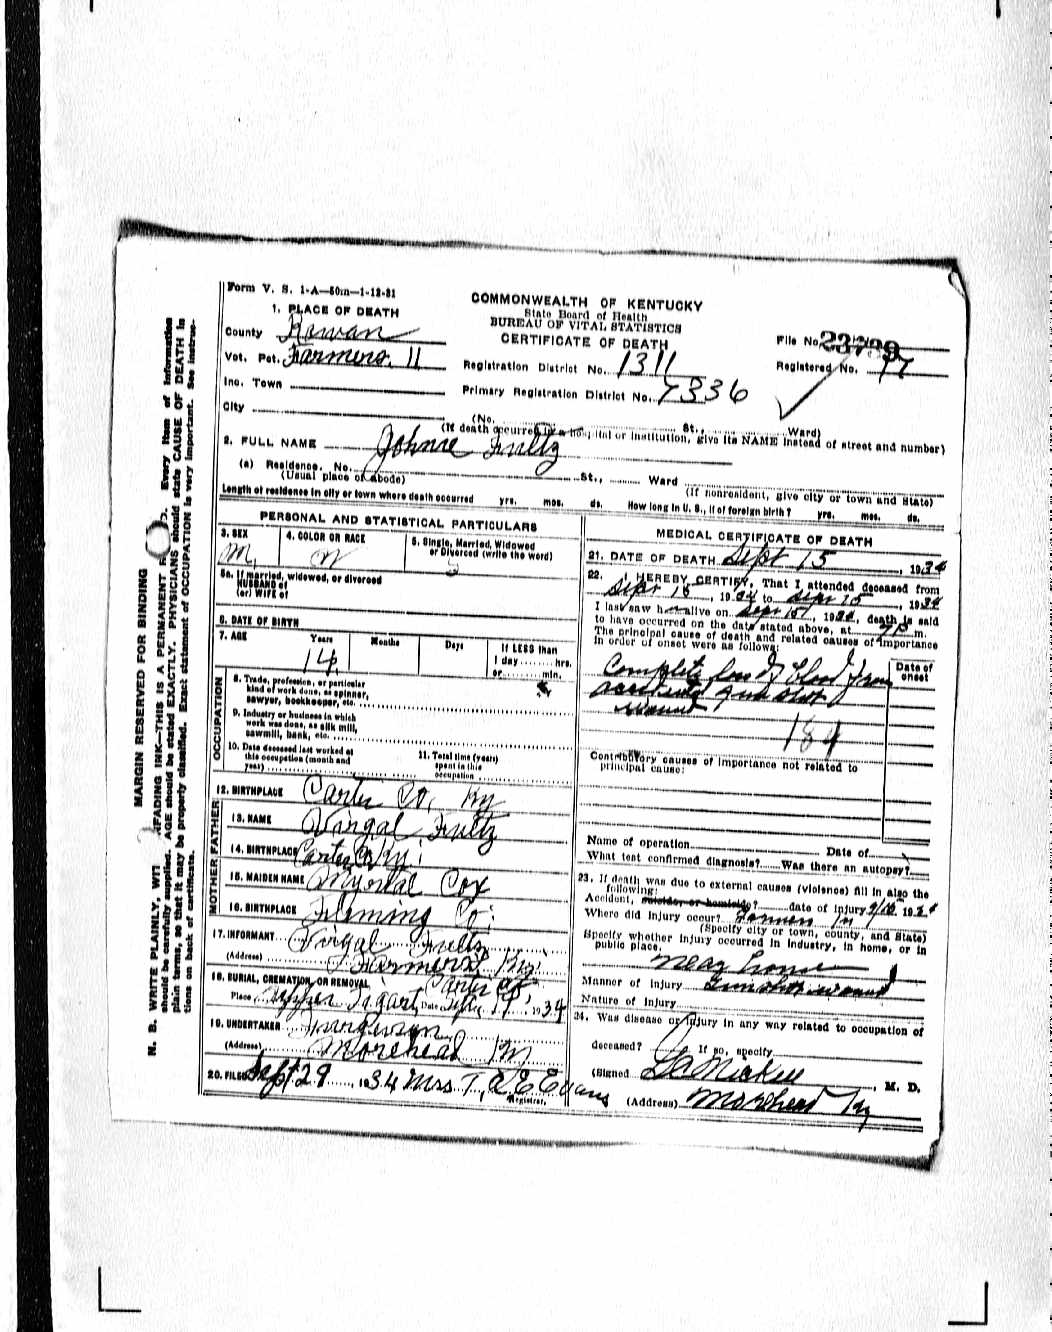 Form V. S. 1-A—50m—1-12-31
COMMONWEALTH OF KENTUCKY
State Board of Health
BUREAU OF VITAL STATISTICS
CERTIFICATE OF DEATH
1. PLACE OF DEATH
County Rowan
Vot. Pct. Farmers. 11
Inc. Town
City
Registration District No. 1311
Primary Registration District No. 7336
File No. 23739
Registered No. 77
(No. St., Ward)
(If death occurred in a hospital or institution, give its NAME instead of street and number)
2. FULL NAME Johnie Fultz
(a) Residence. No. St., Ward
(Usual place of abode) (If nonresident, give city or town and State)
Length of residence in city or town where death occurred yrs. mos. ds. How long in U. S., if of foreign birth? yrs. mos. ds.
PERSONAL AND STATISTICAL PARTICULARS
3. SEX M. 4. COLOR OR RACE W 5. Single, Married, Widowed or Divorced (write the word) S
5a. If married, widowed, or divorced
HUSBAND of
(or) WIFE of
6. DATE OF BIRTH
7. AGE Years Months Days If LESS than
14 1 day hrs.
or min.
OCCUPATION
8. Trade, profession, or particular
kind of work done, as spinner,
sawyer, bookkeeper, etc.
9. Industry or business in which
work was done, as silk mill,
sawmill, bank, etc.
10. Date deceased last worked at
this occupation (month and
year)
11. Total time (years)
spent in this
occupation
12. BIRTHPLACE Carter Co, Ky
FATHER
13. NAME Virgal Fultz
14. BIRTHPLACE Carter Co Ky
MOTHER
15. MAIDEN NAME Myrtal Cox
16. BIRTHPLACE Fleming Co.
17. INFORMANT Virgal Fultz
(Address) Farmers Ky
18. BURIAL, CREMATION, OR REMOVAL Carter Co,
Place Upper Tigart Date Sept 17, 1934
19. UNDERTAKER
(Address) Morehead Ky
20. FILED Sept 29, 1934 Mrs T, A E Evans
Registrar.
MEDICAL CERTIFICATE OF DEATH
21. DATE OF DEATH Sept 15, 1934
22. I HEREBY CERTIFY, That I attended deceased from
Sept 15, 1934 to Sept 15, 1934
I last saw h alive on Sept 15, 1934, death is said
to have occurred on the date stated above, at 7 P m.
The principal cause of death and related causes of importance
in order of onset were as follows:
Date of onset
Complete loss of blood from
accidental gunshot
wound
184
Contributory causes of importance not related to
principal cause:
Name of operation Date of
What test confirmed diagnosis? Was there an autopsy?
23. If death was due to external causes (violence) fill in also the
following:
Accident, suicide, or homicide? date of injury 9/15 1934
Where did injury occur? Farmers Ky
(Specify city or town, county, and State)
Specify whether injury occurred in industry, in home, or in
public place.
near home
Manner of injury Gunshot wound
Nature of injury
24. Was disease or injury in any way related to occupation of
deceased? If so, specify
(Signed) M. D.
(Address) Morehead Ky
MARGIN RESERVED FOR BINDING
N. B. WRITE PLAINLY, WIT FADING INK—THIS IS A PERMANENT R D. Every item of information
should be carefully supplied. AGE should be stated EXACTLY. PHYSICIANS should state CAUSE OF DEATH in
plain terms, so that it may be properly classified. Exact statement of OCCUPATION is very important. See instruc-
tions on back of certificate.